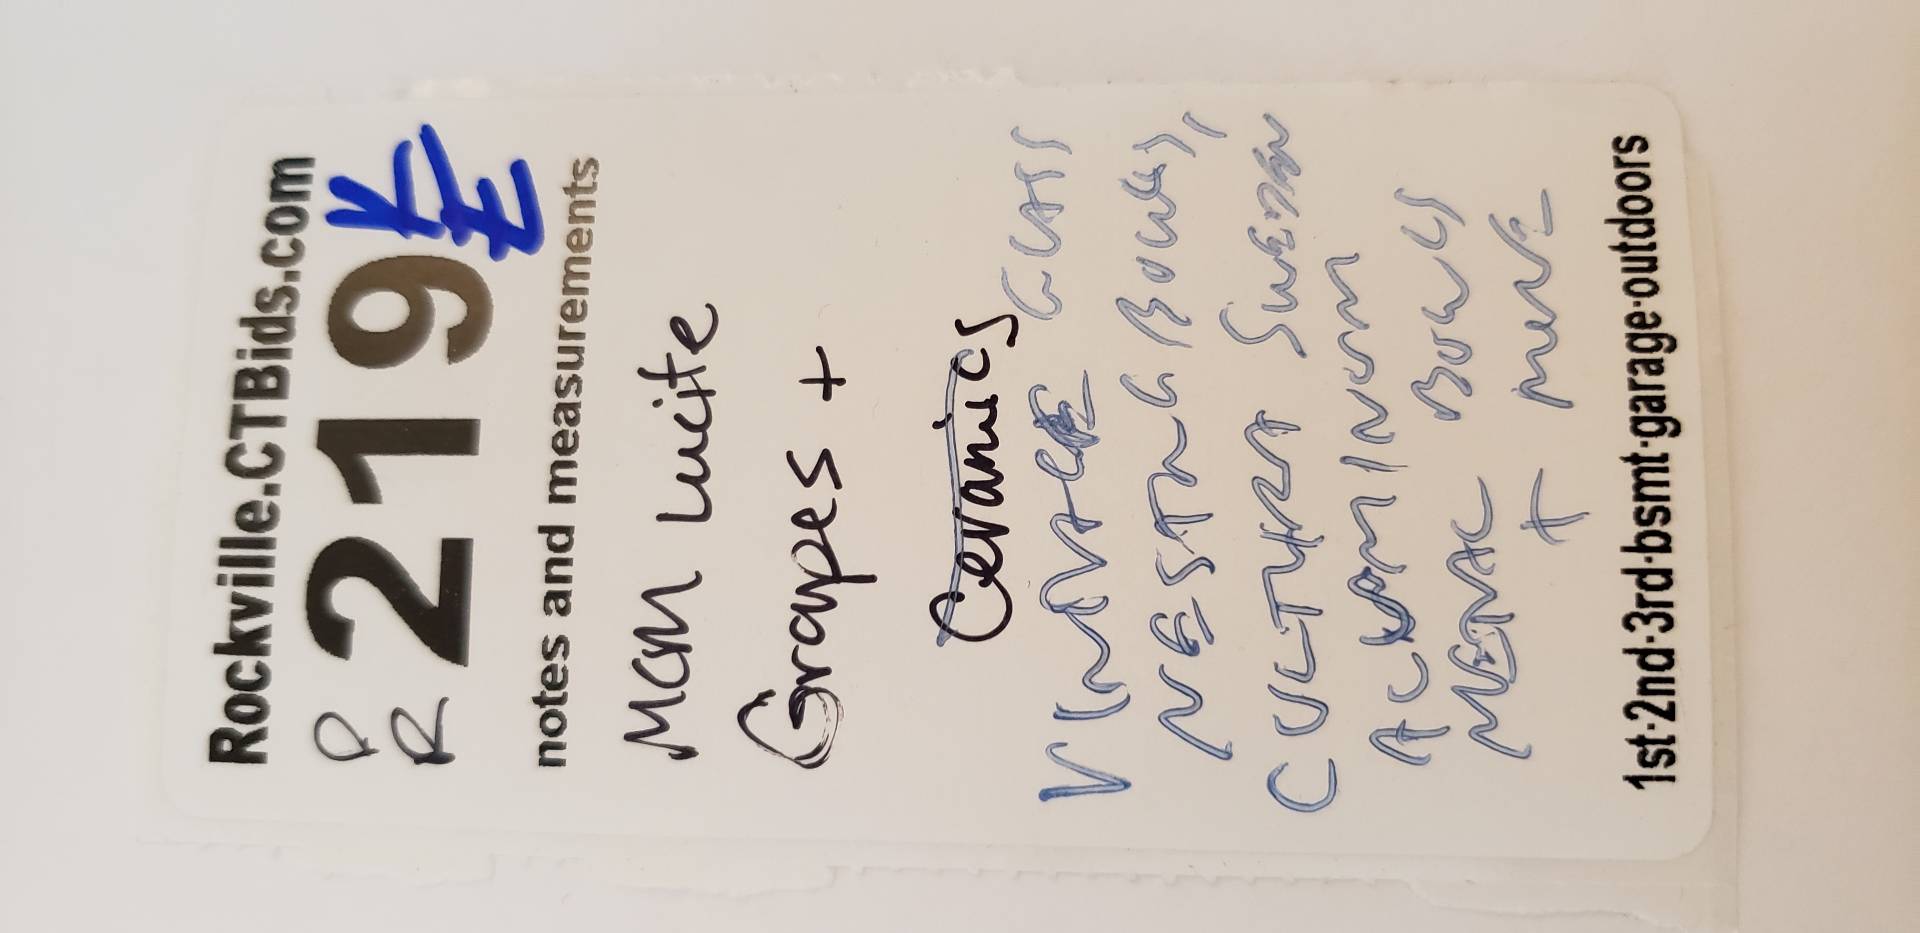 Rockville.CTBids.com
DR 219 KE
notes and measurements
MCM Lucite
Grapes +
Ceramics
VINTAGE GLASS
NESTING BOWLS,
CULTURA SWEDEN
ALUMINUM
METAL BOWLS
+ MORE
1st·2nd·3rd·bsmt·garage·outdoors